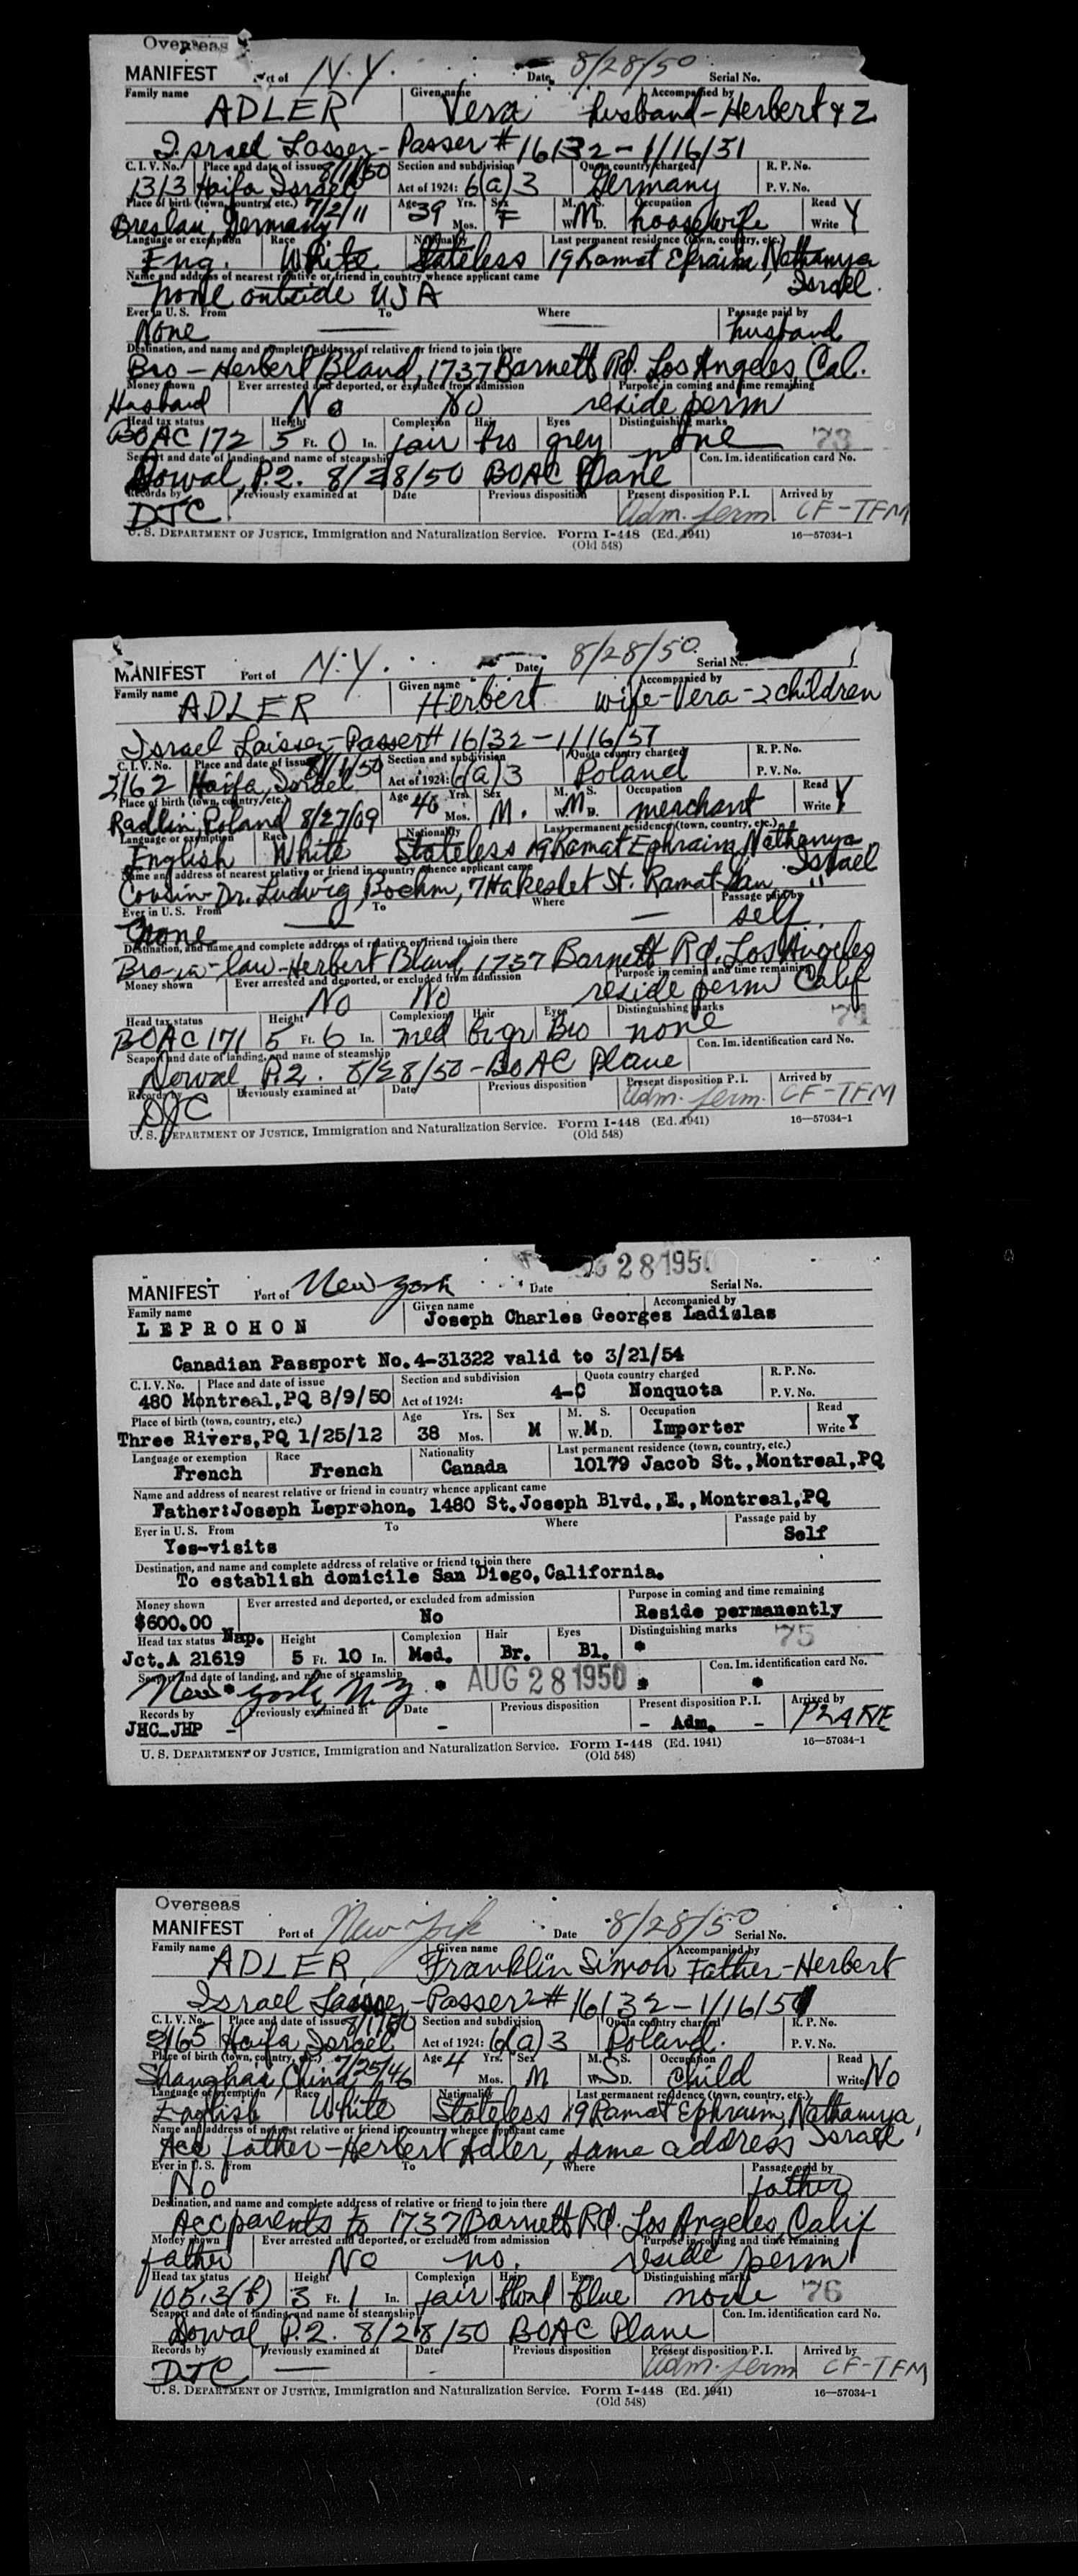 Overseas
MANIFEST Port of N.Y. Date 8/28/50 Serial No.
Family name Given name Accompanied by
ADLER Vera husband-Herbert & 2
Israel Lasser-Passer # 16132-1/16/51
C. I. V. No. Place and date of issue 8/1/50 Section and subdivision Quota country charged R. P. No.
1313 Haifa Israel Act of 1924: 6(a)3 Germany P. V. No.
Place of birth (town, country, etc.) 7/2/11 Age 39 Yrs. Sex M. S. Occupation Read
Breslau, Germany Mos. F W. M D. housewife Write Y
Language or exemption Race Nationality Last permanent residence (town, country, etc.)
Eng. White Stateless 19 Ramat Efraim, Nathanya
Name and address of nearest relative or friend in country whence applicant came Israel.
None outside USA
Ever in U. S. From To Where Passage paid by
None husband
Destination, and name and complete address of relative or friend to join there
Bro-Herbert Bland, 1737 Barnett Rd. Los Angeles, Cal.
Money shown Ever arrested and deported, or excluded from admission Purpose in coming and time remaining
Husband No No reside perm
Head tax status Height Complexion Hair Eyes Distinguishing marks
BOAC 172 5 Ft. 0 In. fair bro grey none 73
Seaport and date of landing, and name of steamship Con. Im. identification card No.
Dorval, P.2. 8/28/50 BOAC Plane
Records by Previously examined at Date Previous disposition Present disposition P. I. Arrived by
DJC Adm. Perm CF-TFM
U. S. DEPARTMENT OF JUSTICE, Immigration and Naturalization Service. Form I-448 (Ed. 1941) 16—57034-1
(Old 548)
MANIFEST Port of N.Y. Date 8/28/50 Serial No.
Family name Given name Accompanied by
ADLER Herbert wife-Vera-2 children
Israel Laissez-Passer# 16132-1/16/51
C. I. V. No. Place and date of issue 8/1/50 Section and subdivision Quota country charged R. P. No.
2162 Haifa, Israel Act of 1924: 6(a)3 Poland P. V. No.
Place of birth (town, country, etc.) Age 40 Yrs. Sex M. S. Occupation Read
Radlin, Poland 8/27/09 Mos. M. W. M D. merchant Write Y
Language or exemption Race Nationality Last permanent residence (town, country, etc.)
English White Stateless 19 Ramat Ephraim, Nathanya
Name and address of nearest relative or friend in country whence applicant came Israel
Cousin-Dr. Ludwig Boehm, 7 Hakeshet St. Ramat-Gan "
Ever in U. S. From To Where Passage paid by
None self
Destination, and name and complete address of relative or friend to join there
Bro-in-law-Herbert Bland 1737 Barnett Rd. Los Angeles
Money shown Ever arrested and deported, or excluded from admission Purpose in coming and time remaining
No No reside perm Calif
Head tax status Height Complexion Hair Eyes Distinguishing marks
BOAC 171 5 Ft. 6 In. med br gr Bro none 74
Seaport and date of landing, and name of steamship Con. Im. identification card No.
Dorval P.2. 8/28/50-BOAC Plane
Records by Previously examined at Date Previous disposition Present disposition P. I. Arrived by
DJC Adm. Perm. CF-TFM
U. S. DEPARTMENT OF JUSTICE, Immigration and Naturalization Service. Form I-448 (Ed. 1941) 16—57034-1
(Old 548)
28 1950
MANIFEST Port of New York Date Serial No.
Family name Given name Accompanied by
LEPROHON Joseph Charles Georges Ladislas
Canadian Passport No. 4-31322 valid to 3/21/54
C. I. V. No. Place and date of issue Section and subdivision Quota country charged R. P. No.
480 Montreal,PQ 8/9/50 Act of 1924: 4-C Nonquota P. V. No.
Place of birth (town, country, etc.) Age Yrs. Sex M. S. Occupation Read
Three Rivers,PQ 1/25/12 38 Mos. M W. M D. Importer Write Y
Language or exemption Race Nationality Last permanent residence (town, country, etc.)
French French Canada 10179 Jacob St.,Montreal,PQ
Name and address of nearest relative or friend in country whence applicant came
Father:Joseph Leprohon, 1480 St.Joseph Blvd.,E.,Montreal,PQ
Ever in U. S. From To Where Passage paid by
Yes-visits Self
Destination, and name and complete address of relative or friend to join there
To establish domicile San Diego,California.
Money shown Ever arrested and deported, or excluded from admission Purpose in coming and time remaining
$600.00 No Reside permanently
Head tax status Nap. Height Complexion Hair Eyes Distinguishing marks 75
Jct.A 21619 5 Ft. 10 In. Med. Br. Bl. *
Seaport and date of landing, and name of steamship Con. Im. identification card No.
New York, N.Y. * AUG 28 1950 * *
Records by Previously examined at Date Previous disposition Present disposition P. I. Arrived by
JHC_JHP - - - Adm. - PLANE
U. S. DEPARTMENT OF JUSTICE, Immigration and Naturalization Service. Form I-448 (Ed. 1941) 16—57034-1
(Old 548)
Overseas
MANIFEST Port of New York Date 8/28/50 Serial No.
Family name Given name Accompanied by
ADLER, Franklin Simon Father-Herbert
Israel Laissez-Passer # 16132-1/16/51
C. I. V. No. Place and date of issue 8/1/50 Section and subdivision Quota country charged R. P. No.
2165 Haifa, Israel Act of 1924: 6(a)3 Poland. P. V. No.
Place of birth (town, country, etc.) 7/25/46 Age 4 Yrs. Sex M. S. Occupation Read
Shanghai, China Mos. M W. S D. Child Write No
Language or exemption Race Nationality Last permanent residence (town, country, etc.)
English White Stateless 19 Ramat Ephraim, Nathanya,
Name and address of nearest relative or friend in country whence applicant came
Acc father-Herbert Adler, same address Israel
Ever in U. S. From To Where Passage paid by
No father
Destination, and name and complete address of relative or friend to join there
Acc parents to 1737 Barnett Rd. Los Angeles, Calif
Money shown Ever arrested and deported, or excluded from admission Purpose in coming and time remaining
father No no. reside perm
Head tax status Height Complexion Hair Eyes Distinguishing marks
105.3(f) 3 Ft. 1 In. fair blond blue none 76
Seaport and date of landing, and name of steamship Con. Im. identification card No.
Dorval P.2. 8/28/50 BOAC Plane
Records by Previously examined at Date Previous disposition Present disposition P. I. Arrived by
DJC Adm. Perm CF-TFM
U. S. DEPARTMENT OF JUSTICE, Immigration and Naturalization Service. Form I-448 (Ed. 1941) 16—57034-1
(Old 548)